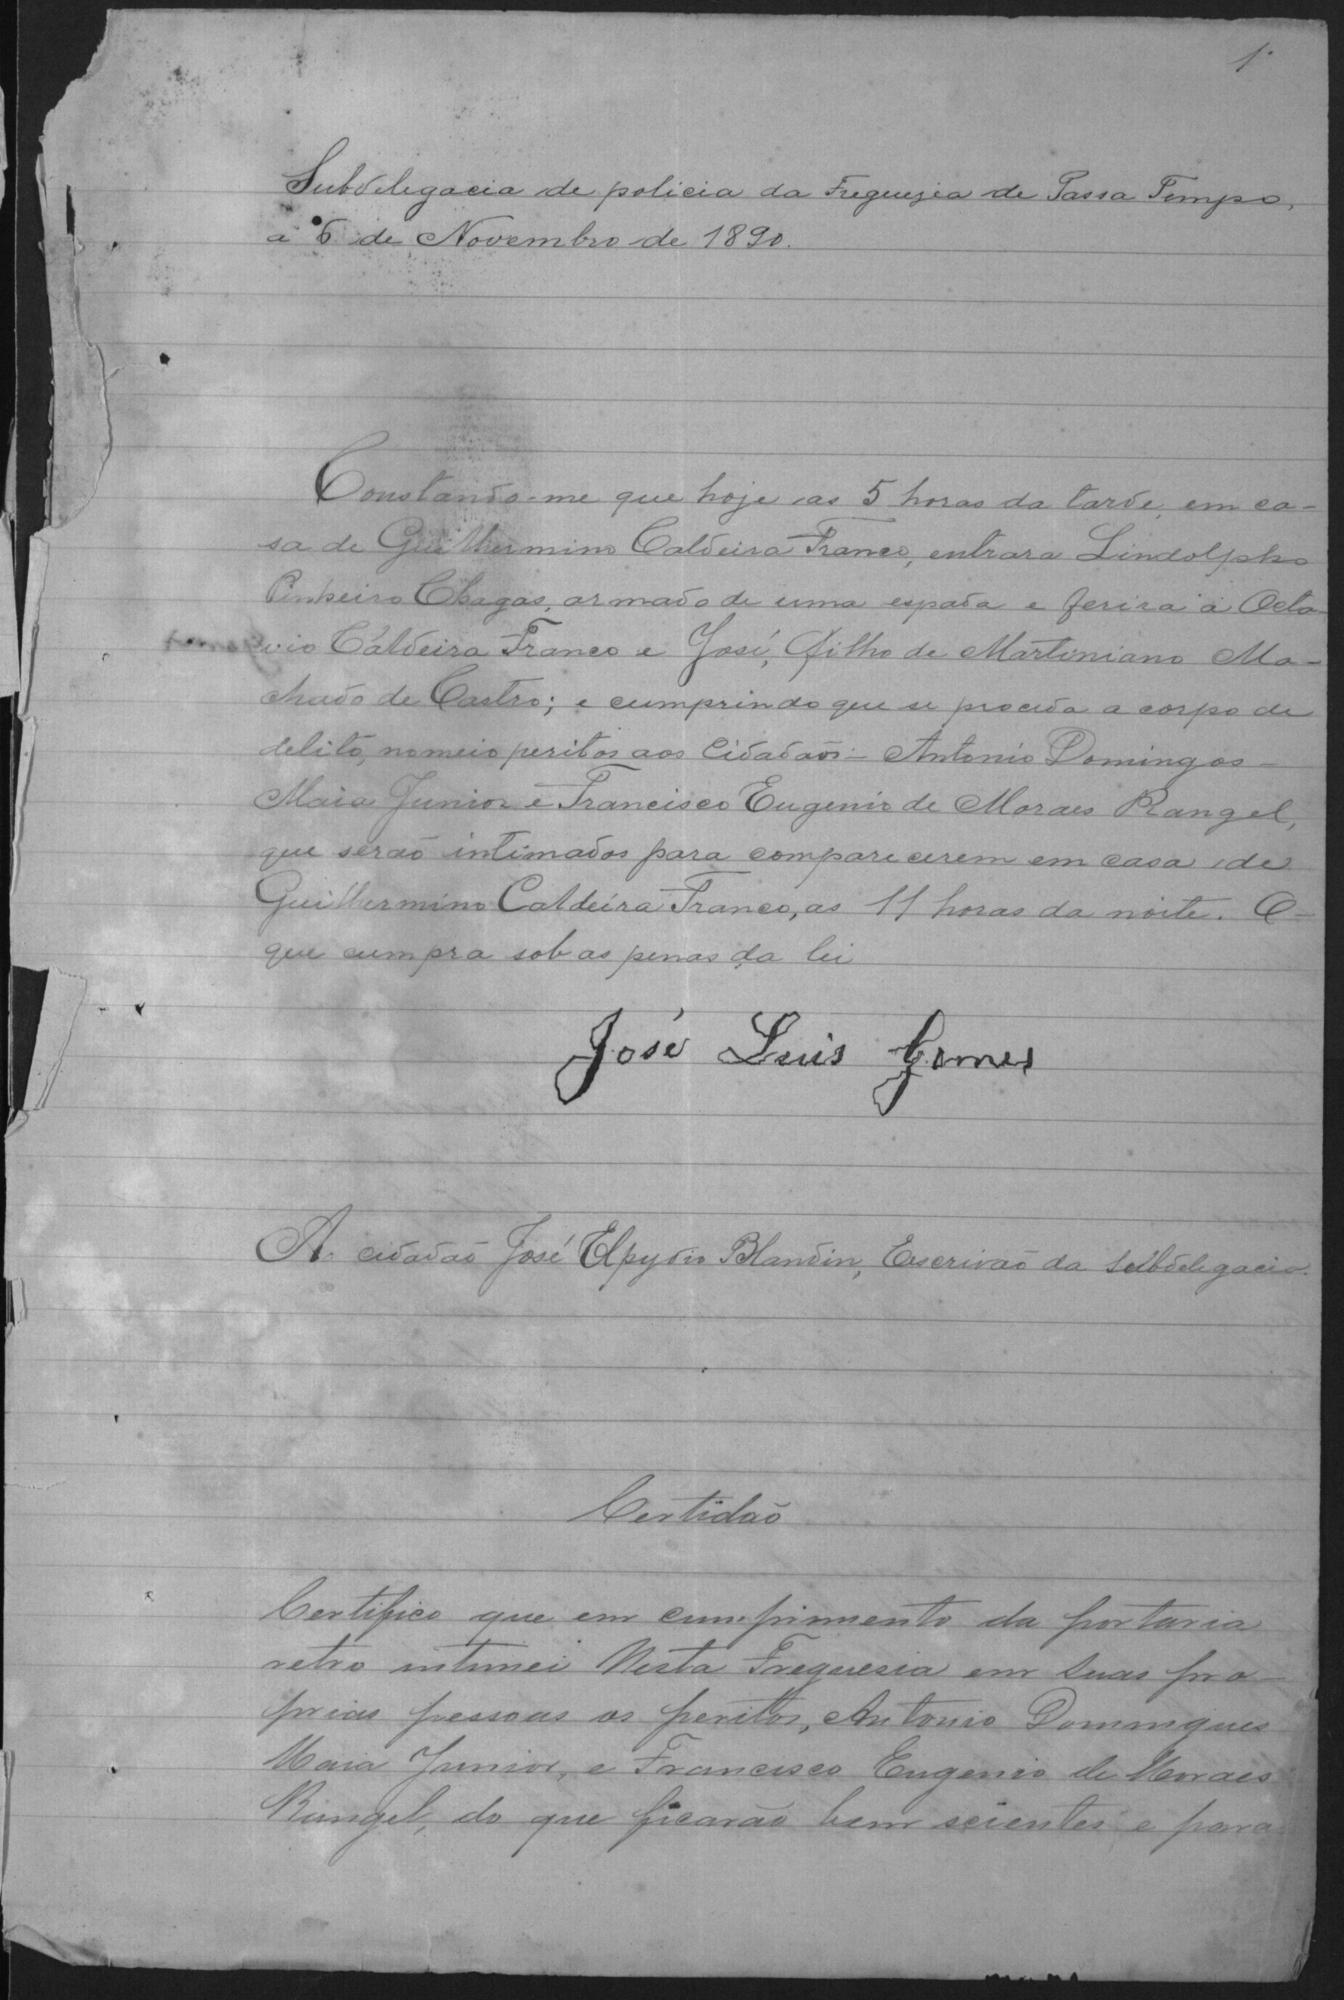 1.
Subdelegacia de policia da Freguezia de Passa Tempo,
a 6 de Novembro de 1890.
Constando-me que hoje as 5 horas da tarde, em ca-
sa de Guilhermino Caldeira Franco, entrara Lindolpho
Pinheiro Chagas, armado de uma espada e ferira a Octa-
vio Caldeira Franco e José, filho de Martiniano Ma-
chado de Castro; e cumprindo que se proceda a corpo de
delito, nomeio peritos aos Cidadãos - Antonio Domingos -
Maia Junior e Francisco Eugenio de Moraes Rangel,
que serão intimados para comparecerem em casa de
Guilhermino Caldeira Franco, as 11 horas da noite. O-
que cumpra sob as penas da lei
José Luis Gomes
Ao cidadão José Elpydio Blandin, Escrivão da Subdelegacia.
Certidão
Certifico que em cumprimento da portaria
retro intimei Nesta Freguesia em suas pro-
prias pessoas os peritos, Antonio Domingues
Maia Junior, e Francisco Eugenio de Moraes
Rangel, do que ficarão bem scientes e para